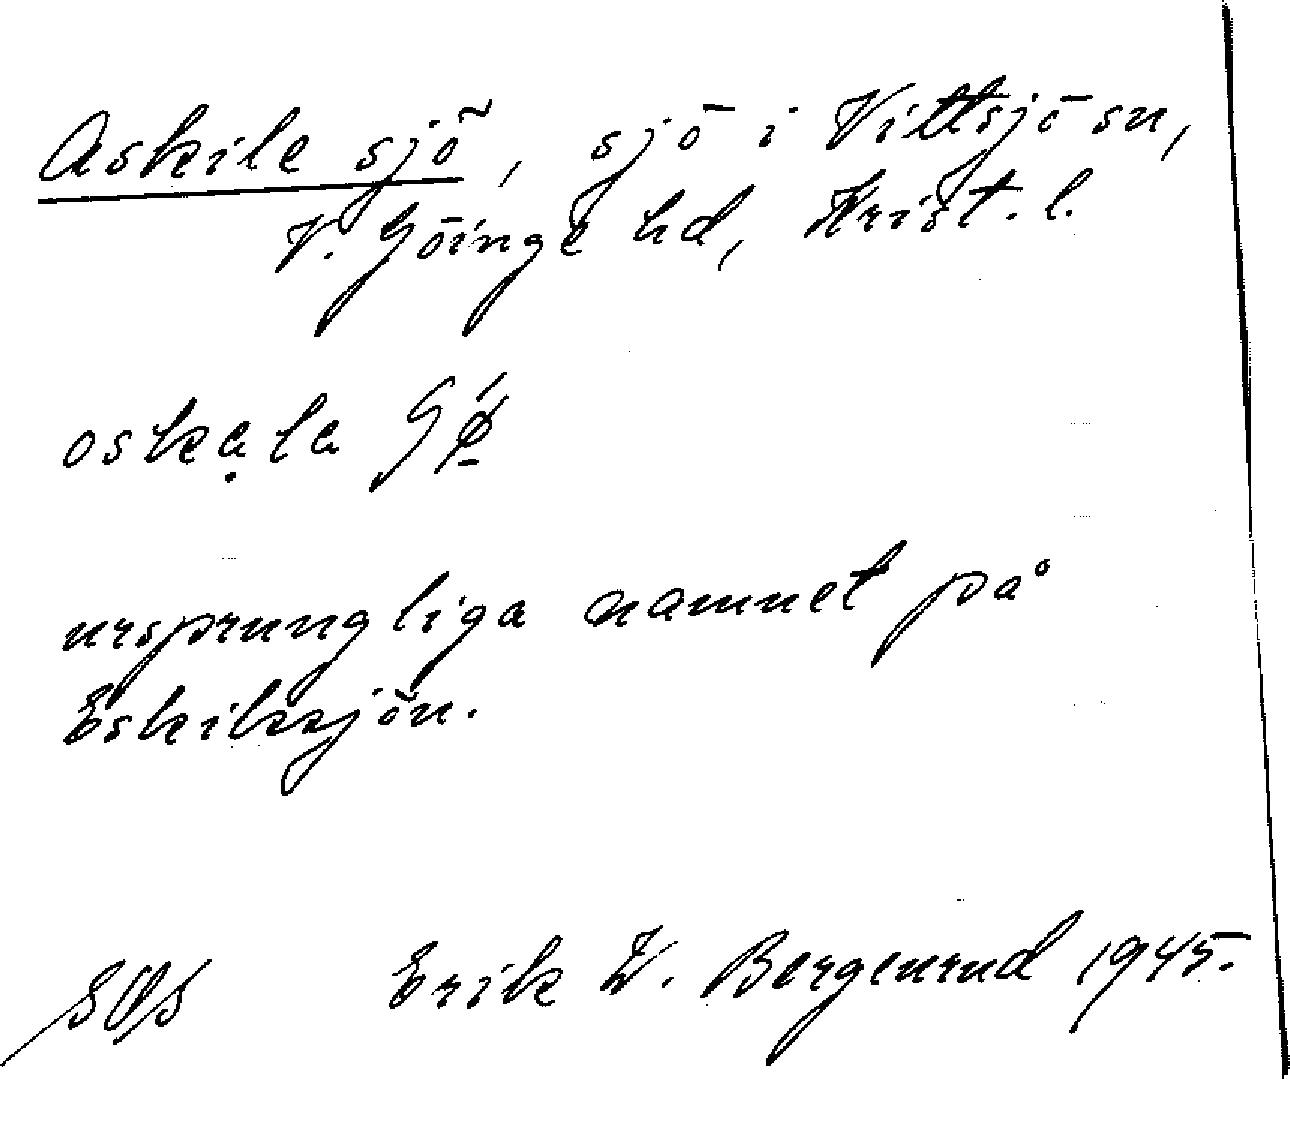 Askile sjö, sjö i Vittsjö sn,
V. Göinge hd, Krist. l.
oskạla
ursprungliga namnet på
Eskilssjön.
Erik W. Bergenrud 1945.